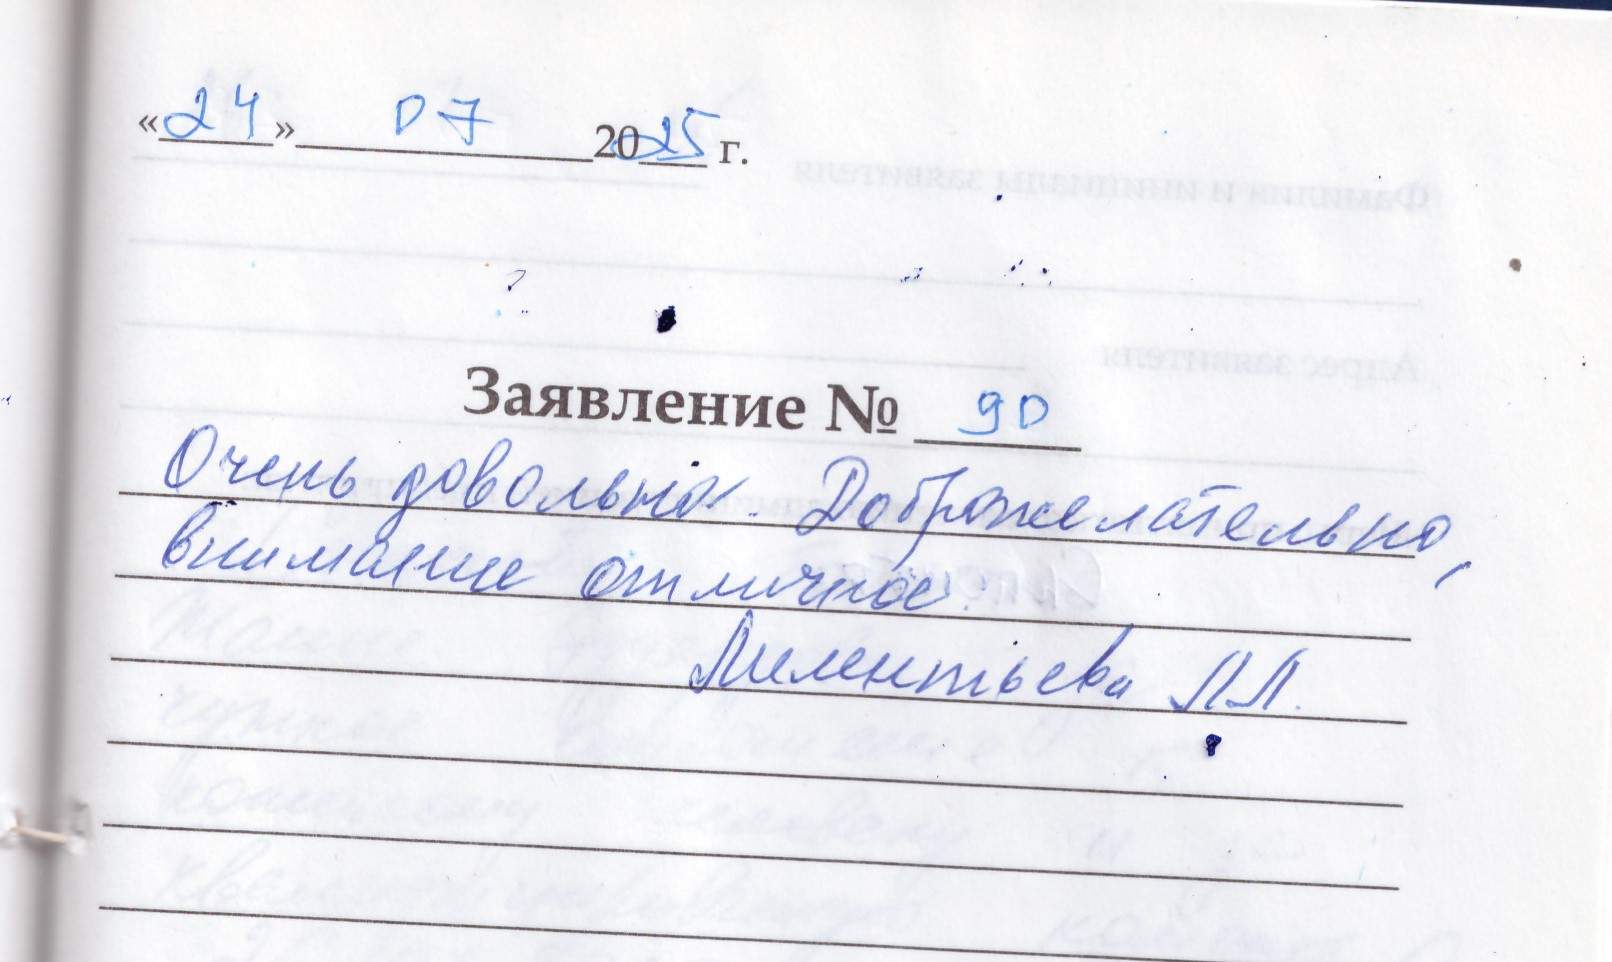 «24» 07 2025 г.
Заявление № 90
Очень довольны. Доброжелательно,
внимание отличное.
Л.Л.